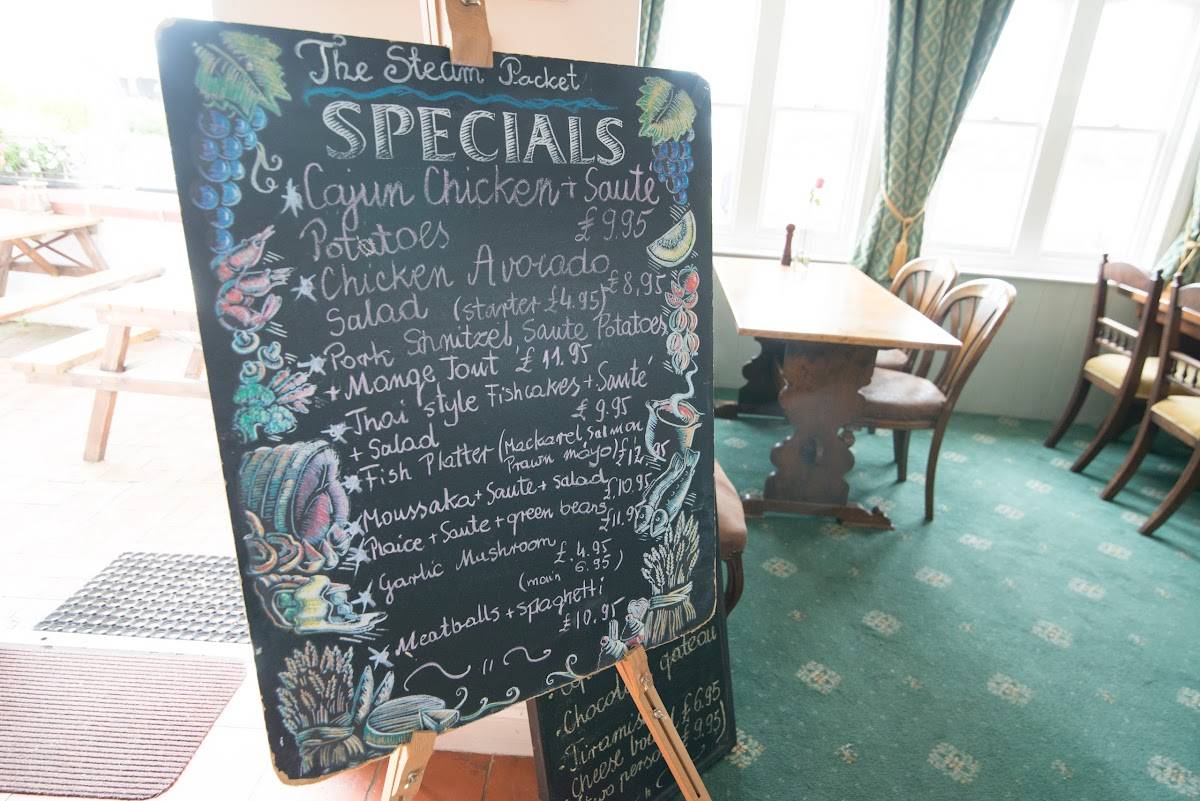 The Steam Packet
SPECIALS
Cajun Chicken + Sauté
Potatoes £ 9.95
Chicken Avorado
Salad (starter £4.95) £8,95
Pork Shnitzel, Saute Potatoes
+ Mange Tout £ 11.95
Thai style Fishcakes + Sauté
+ Salad £ 9.95
Fish Platter (Mackarel, Salman
Prawn mayo) £12.95
Moussaka + Saute + salad
£10.95
Plaice + Saute + green beans
£11.95
Garlic Mushroom £.4.95
(main 6.95)
Meatballs + spaghetti
£10.95
gateau
Chocola
Tiramis £6.95
Cheese boa £9.95)
two perso